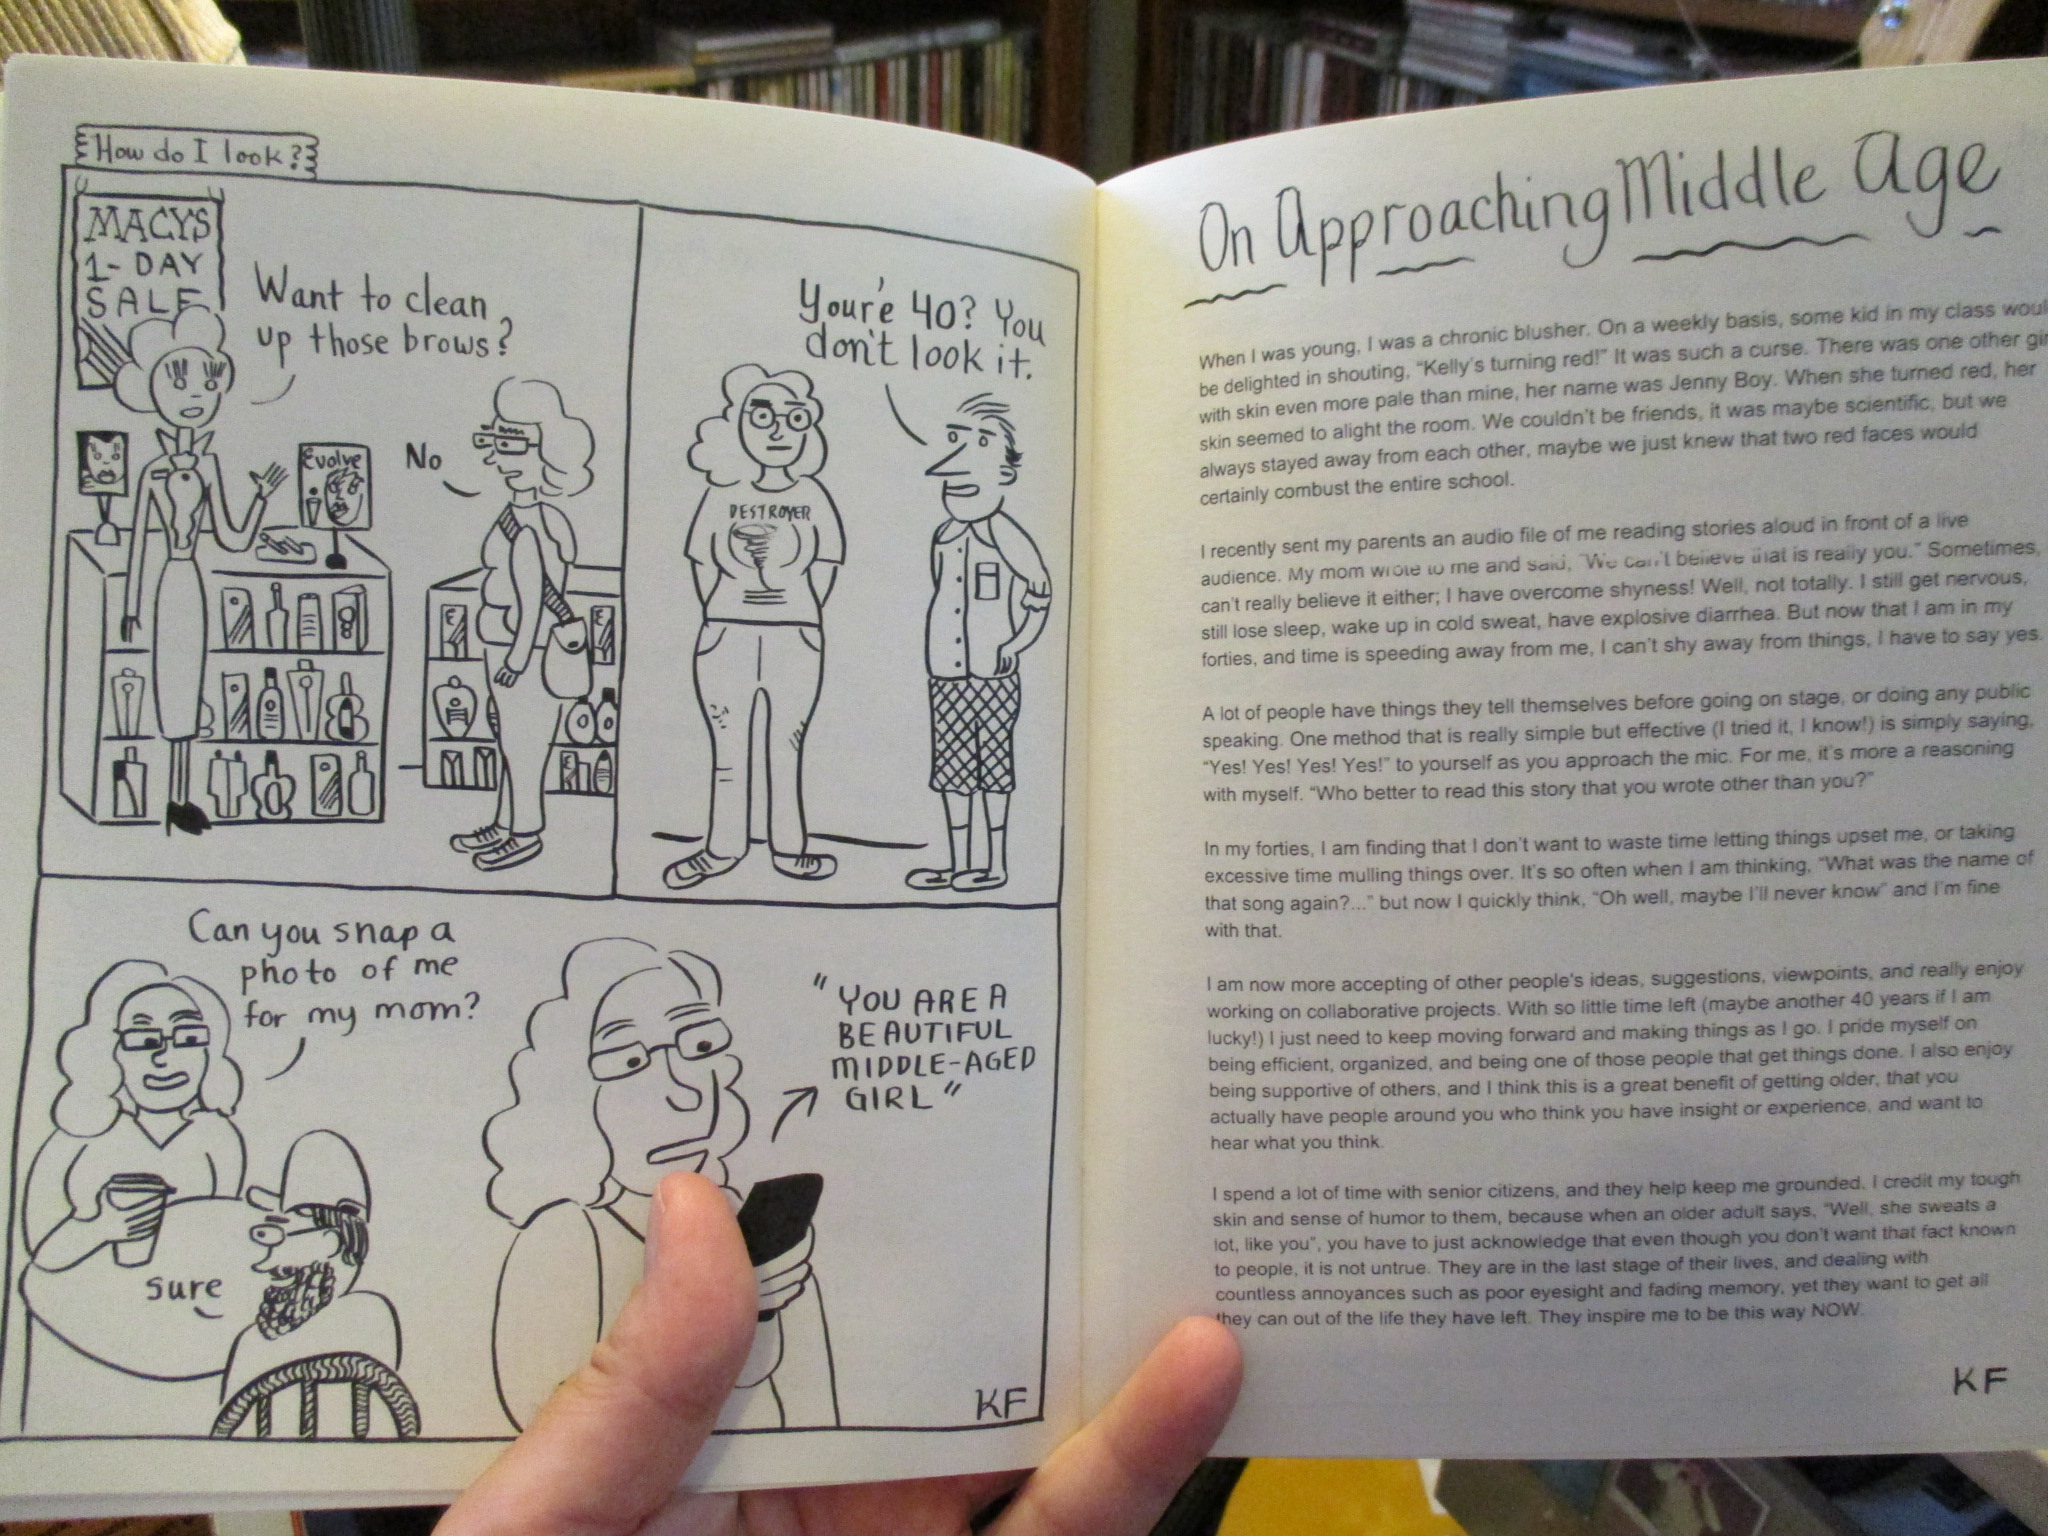 How do I look?
MACY'S
1-DAY
SALE
Want to clean
up those brows?
Evolve
No
Your'e 40? You
don't look it.
DESTROYER
Can you snap a
photo of me
for my mom?
sure
"YOU ARE A
BEAUTIFUL
MIDDLE-AGED
GIRL"
KF
On Approaching Middle Age
When I was young, I was a chronic blusher. On a weekly basis, some kid in my class
be delighted in shouting, “Kelly's turning red!” It was such a curse. There was one other
with skin even more pale than mine, her name was Jenny Boy. When she turned red, her
skin seemed to alight the room. We couldn't be friends, it was maybe scientific, but we
always stayed away from each other, maybe we just knew that two red faces would
certainly combust the entire school.
I recently sent my parents an audio file of me reading stories aloud in front of a live
audience. My mom wrote to me and said, “We can't believe that is really you.” Sometimes, I
can't really believe it either; I have overcome shyness! Well, not totally. I still get nervous,
still lose sleep, wake up in cold sweat, have explosive diarrhea. But now that I am in my
forties, and time is speeding away from me, I can't shy away from things, I have to say yes.
A lot of people have things they tell themselves before going on stage, or doing any public
speaking. One method that is really simple but effective (I tried it, I know!) is simply saying,
“Yes! Yes! Yes! Yes!” to yourself as you approach the mic. For me, it's more a reasoning
with myself. “Who better to read this story that you wrote other than you?”
In my forties, I am finding that I don't want to waste time letting things upset me, or taking
excessive time mulling things over. It's so often when I am thinking, “What was the name of
that song again?...” but now I quickly think, “Oh well, maybe I'll never know” and I'm fine
with that.
I am now more accepting of other people's ideas, suggestions, viewpoints, and really enjoy
working on collaborative projects. With so little time left (maybe another 40 years if I am
lucky!) I just need to keep moving forward and making things as I go. I pride myself on
being efficient, organized, and being one of those people that get things done. I also enjoy
being supportive of others, and I think this is a great benefit of getting older, that you
actually have people around you who think you have insight or experience, and want to
hear what you think.
I spend a lot of time with senior citizens, and they help keep me grounded. I credit my tough
skin and sense of humor to them, because when an older adult says, “Well, she sweats a
lot, like you”, you have to just acknowledge that even though you don't want that fact known
to people, it is not untrue. They are in the last stage of their lives, and dealing with
countless annoyances such as poor eyesight and fading memory, yet they want to get all
they can out of the life they have left. They inspire me to be this way NOW.
KF